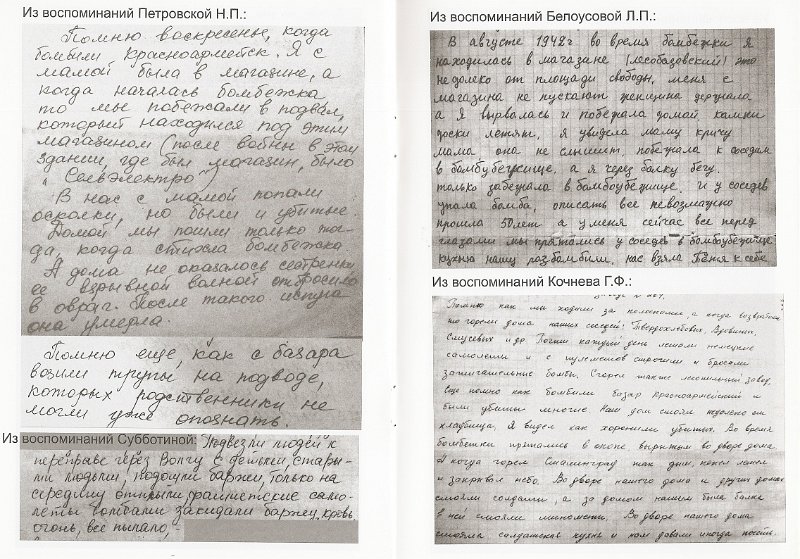 Из воспоминаний Петровской Н.П.:
Помню воскресенье, когда
бомбили Красноармейск. Я с
мамой была в магазине, а
когда началась бомбежка
то мы побежали в подвал,
который находился под этим
магазином (после войны в этом
здании, где был магазин, было
"Сельэлектро")
В нас с мамой попали
осколки, но были и убитые.
Домой мы пошли только то-
гда, когда стихла бомбежка
А дома не оказалось сестренки
ее взрывной волной отбросило
в овраг. После такого испуга
она умерла.
Помню еще, как с базара
возили трупы на подводе,
которых родственники не
могли уже опознать.
Из воспоминаний Субботиной:
Подвезли людей к
переправе через Волгу с детьми, стары-
ми людьми, подошли баржи, только на
середину отплыли, фашистские само-
леты бомбами закидали баржу, кровь,
огонь, все пылало,
Из воспоминаний Белоусовой Л.П.:
В августе 1942г во время бомбежки я
находилась в магазине (лесобазовский) это
недалеко от площади свободы, меня с
магазина не пускают женщина держала
а я вырвалась и побежала домой камни
доски летят, я увидела маму кричу
мама она не слышит, побежала к соседям
в бомбубежище, а я через балку бегу.
только забежала в бомбоубежище, и у соседей
упала бомба, описать все невозможно
прошла 50 лет а у меня сейчас все перед
глазами мы прятались у соседей в бомбоубежище
кухню нашу разбомбили, нас взяла к себе
Из воспоминаний Кочнева Г.Ф.:
Помню как мы ходили за а когда
то горели дома наших соседей:
и др. Почти каждый день летали немецкие
самолеты и с пулеметов строчили и бросали
зажигательные бомбы. Сгорел также лесопильный завод.
Еще помню как бомбили базар красноармейский и
были убиты многие. Наш дом стоял недалеко от
кладбища, я видел как хоронили убитых. Во время
бомбежки прятались в окопе вырытом во дворе дома.
А когда горел Сталинград
и закрывал небо. Во дворе нашего дома и других домах
стояли солдаты, а за домом нашим была балка
в ней стояли минометы. Во дворе нашего дома
стояла солдатская кухня и нам давали иногда поесть.